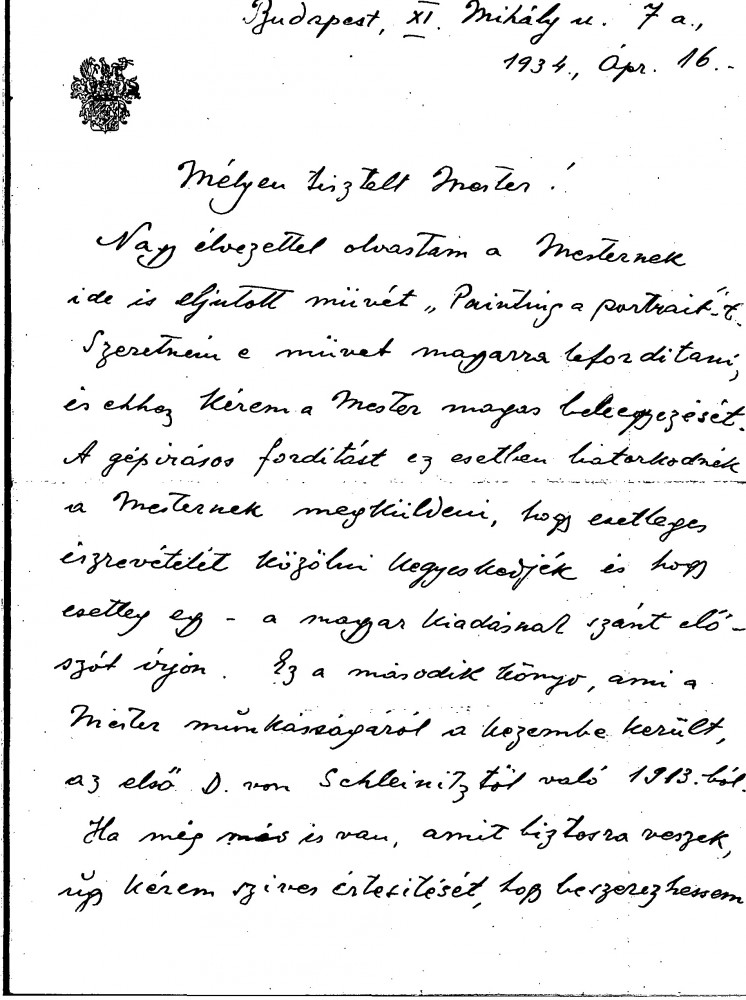 Budapest, XI. Mihály u. 7 a.,
1934., Ápr. 16.-
Mélyen tisztelt Mester!
Nagy élvezettel olvastam a Mesternek
ide is eljutott müvét „Painting a portrait"-t.
Szeretném e müvet magyarra leforditani,
és ehhez kérem a Mester magas beleegyezését.
A gépirásos forditást ez esetben bátorkodnék
a Mesternek megküldeni, hogy esetleges
észrevételét közölni kegyeskedjék és hogy
esetleg egy - a magyar kiadásnak szánt elő-
szót irjon. Ez a második könyv, ami a
Mester műnkásságáról a kezembe került,
az első D. von Schleinitztöl való 1913.-ból.
Ha még más is van, amit biztosra veszek,
úgy kérem szives értesitését, hogy beszerezhessem